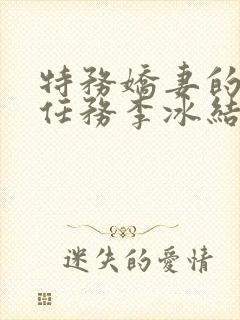 特務嬌妻的
任務李冰結
迷失的愛情